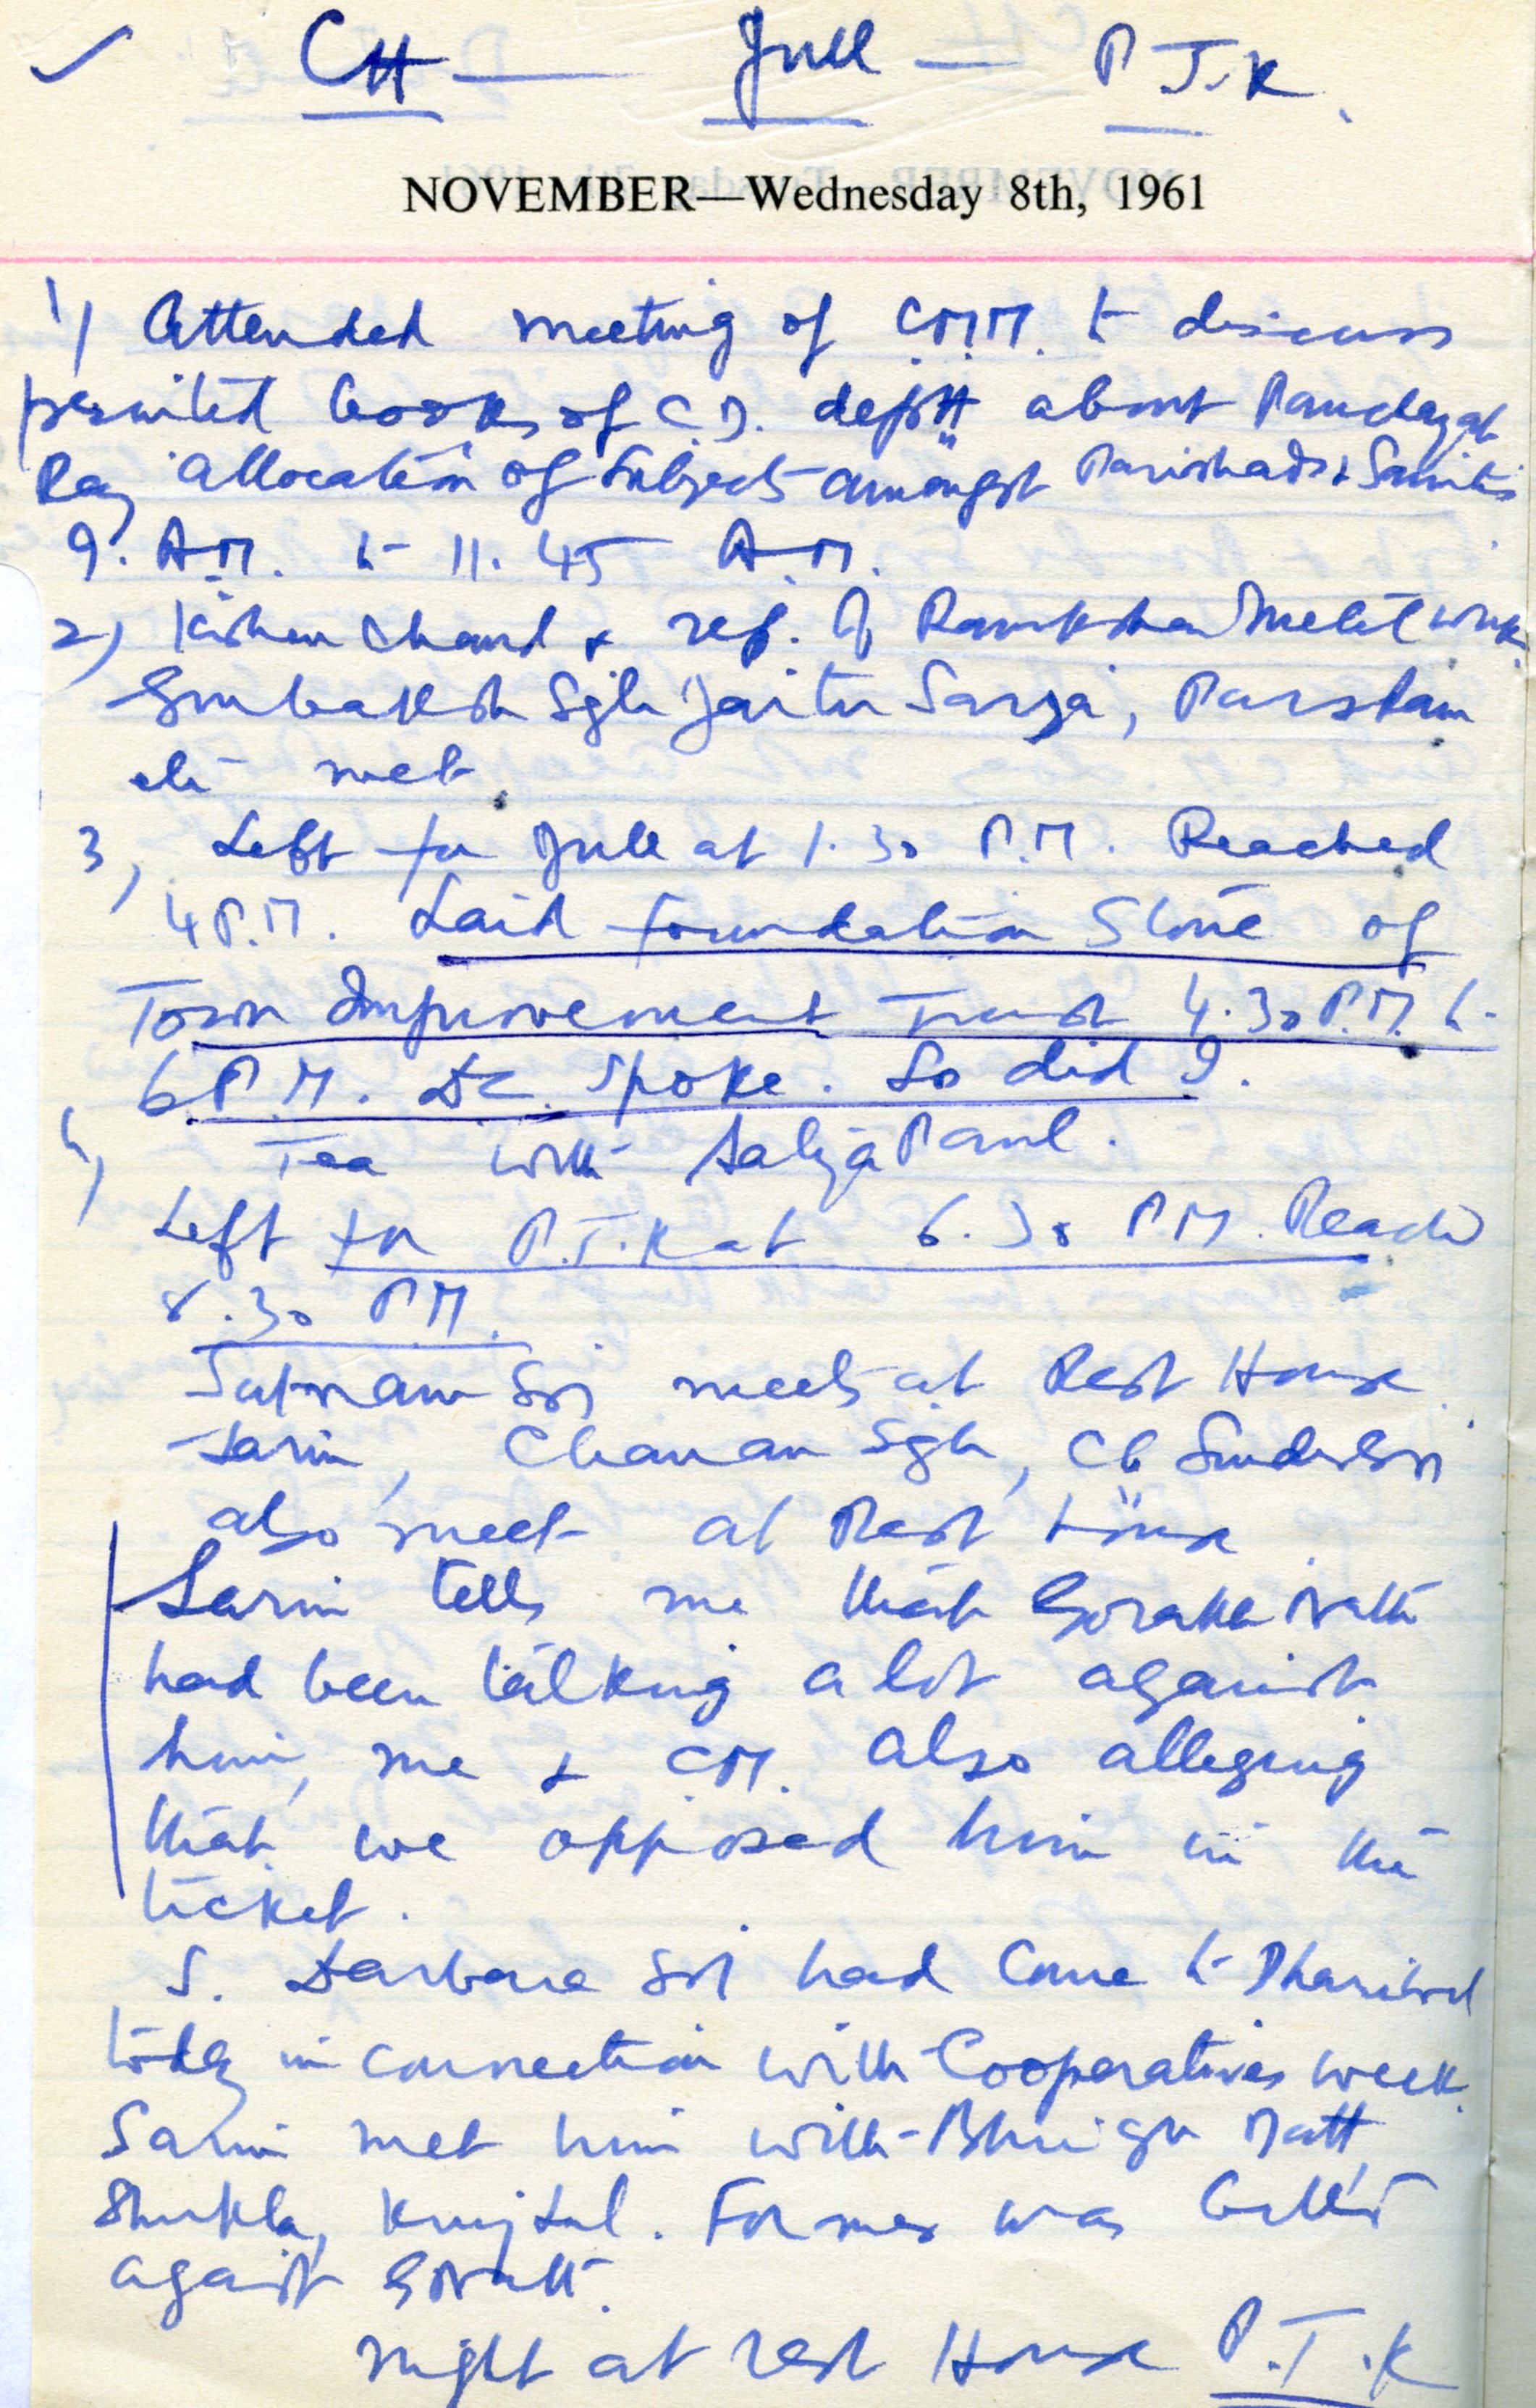 CH — Jull — P.T.K.
NOVEMBER—Wednesday 8th, 1961
1) Attended meeting of C.M.M. to discuss
printed books of C.D. deptt about Panchayat
Raj allocation of subjects amongst Parishads & Samitis
9. A.M. to 11.45 A.M.
2) Kishan Chand & rep. of Metal works
Gurbaksh Sgh Jaitu Sarja,
etc met
3) Left for Jull at 1.30 P.M. Reached
4 P.M. Laid foundation Stone of
Town Improvement Trust 4.30 P.M. to
6 P.M. DC. Spoke. So did I.
4) Tea with Satya Paul.
Left for P.T.K at 6.30 P.M. Reach
8.30 P.M.
Satnam Sgh meets at Rest House
Sarin, Chanan Sgh, Ch Sunder Sgh
also meet at Rest House
Sarin tells me that Gorakh Nath
had been talking a lot against
him, me & CM. also alleging
that we opposed him in the
ticket.
S. Darbara Sgh had come to Dhariwal
today in connection with Cooperatives week.
Sarin met him with Bhrigu Datt
Shukla, Former was bitter
against GNath.
night at rest House P.T.K